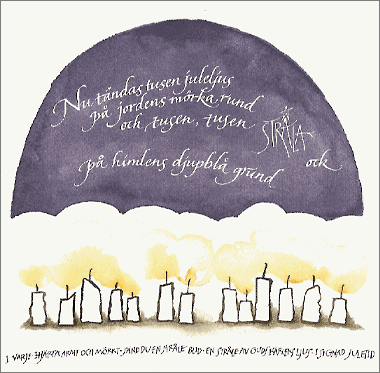 Nu tändas tusen juleljus
på jordens mörka rund
och tusen, tusen
STRÅLA ock
på himlens djupblå grund
I VARJE HJÄRTA ARMT OCH MÖRKT · SÄND DU EN STRÅLE BLID · EN STRÅLE AV GUDS KÄRLEKS LJUS · I SIGNAD JULETID